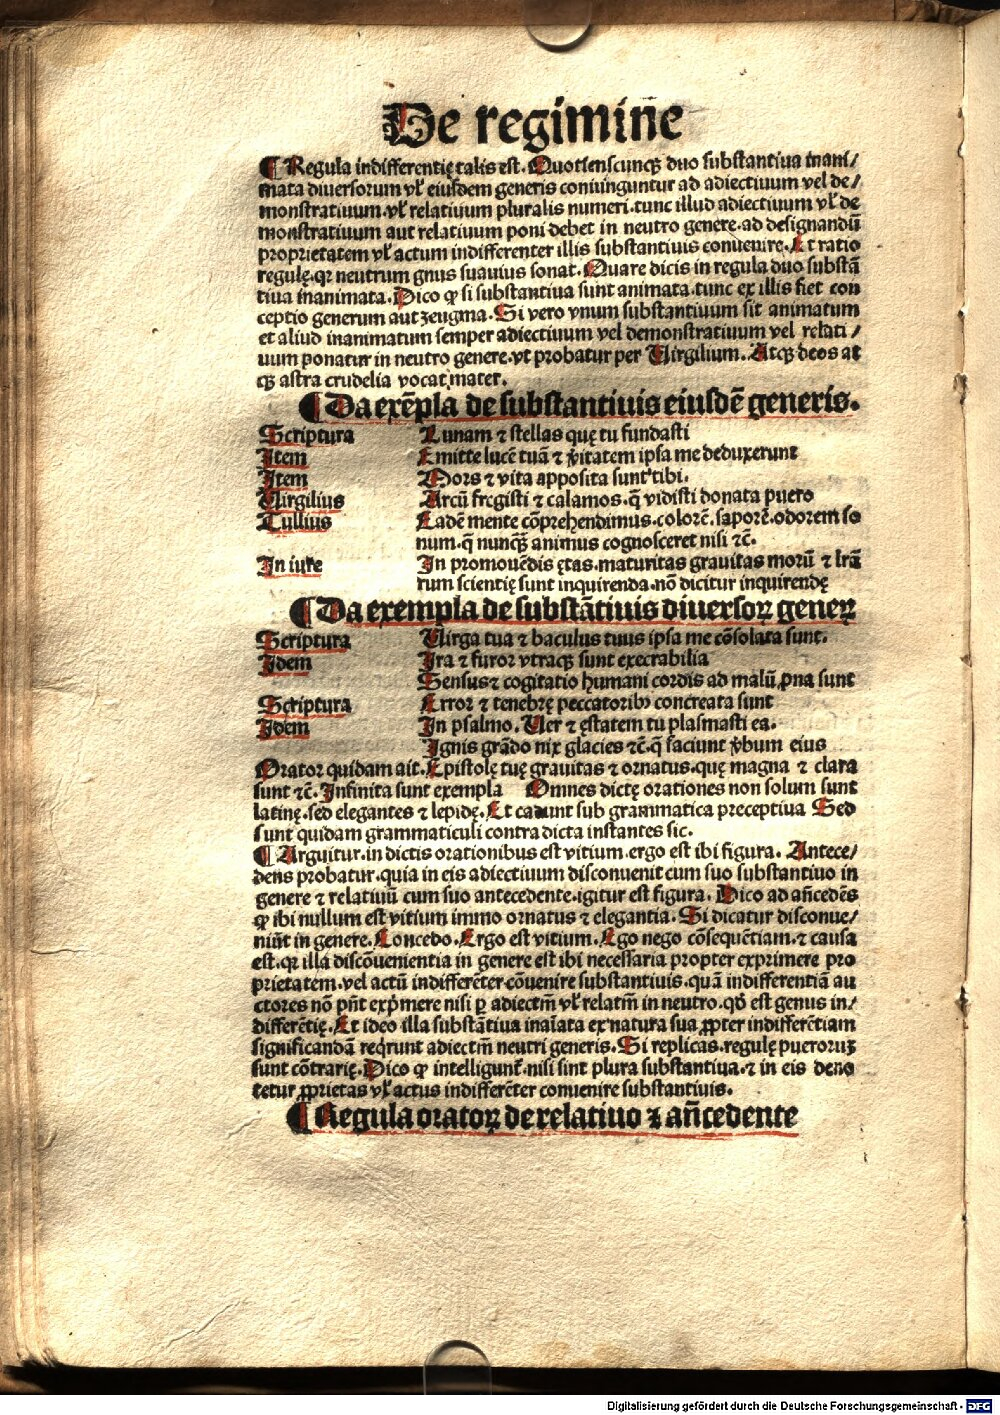 De regimin̄e
¶ Regula indifferentię talis est. Quotienscunqꝫ duo substantiua inani/
mata diuersorum vl' eiusdem generis coniunguntur ad adiectiuum vel de/
monstratiuum. vl' relatiuum pluralis numeri. tunc illud adiectiuum vl' de
monstratiuum aut relatiuum poni debet in neutro genere. ad designandū
proprietatem vl' actum indifferenter illis substantiuis conuenire. Et ratio
regulę. qꝛ neutrum gnus suauius sonat. Quare dicis in regula duo substā
tiua inanimata. Dico ꝙ si substantiua sunt animata. tunc ex illis fiet con
ceptio generum aut zeugma. Si vero vnum substantiuum sit animatum
et aliud inanimatum semper adiectiuum vel demonstratiuum vel relati/
uum ponatur in neutro genere. vt probatur per Virgilium. Atqꝫ deos at
qꝫ astra crudelia vocat mater.
¶ Da exēpla de substantiuis eiusdē generis.
Scriptura Lunam ⁊ stellas quę tu fundasti
Item Emitte lucē tuā ⁊ v̓itatem ipsa me deduxerunt
Item Mors ⁊ vita apposita sunt tibi.
Virgilius Arcū fregisti ⁊ calamos. q̄ vidisti donata puero
Tullius Eadē mente cōprehendimus. colorē. saporē. odorem so
num. q̄ nunqꝫ animus cognosceret nisi ⁊c̄.
In iure In promouēdis ętas. maturitas grauitas morū ⁊ lrā
rum scientię sunt inquirenda. nō dicitur inquirendę
¶ Da exempla de substātiuis diuersoꝝ geneꝝ
Scriptura Virga tua ⁊ baculus tuus ipsa me cōsolata sunt.
Idem Ira ⁊ furor vtraqꝫ sunt execrabilia
Sensus ⁊ cogitatio humani cordis ad malū ꝓna sunt
Scriptura Error ⁊ tenebrę peccatoribꝰ concreata sunt
Idem In psalmo. Uer ⁊ ęstatem tu plasmasti ea.
Ignis grādo nix glacies ⁊c̄. q̄ faciunt v̓bum eius
Orator quidam ait. Epistolę tuę grauitas ⁊ ornatus. quę magna ⁊ clara
sunt ⁊c̄. Infinita sunt exempla Omnes dictę orationes non solum sunt
latinę. sed elegantes ⁊ lepidę. Et cadunt sub grammatica preceptiua Sed
sunt quidam grammaticuli contra dicta instantes sic.
¶ Arguitur. in dictis orationibus est vitium. ergo est ibi figura. Antece/
dens probatur. quia in eis adiectiuum disconuenit cum suo substantiuo in
genere ⁊ relatiuū cum suo antecedente. igitur est figura. Dico ad an̄cedēs
ꝙ ibi nullum est vitium immo ornatus ⁊ elegantia. Si dicatur disconue/
niūt in genere. Concedo. Ergo est vitium. Ego nego cōsequētiam. ⁊ causa
est. qꝛ illa discōuenientia in genere est ibi necessaria propter exprimere pro
prietatem. vel actū indifferēter cōuenire substantiuis. quā indifferentiā au
ctores nō pn̄t exp̓mere nisi ꝑ adiectm̄ vl' relatm̄ in neutro. qd̓ est genus in/
differētię. Et ideo illa substātiua inaīata ex natura sua ꝓpter indifferētiam
significandā reqͥrunt adiectm̄ neutri generis. Si replicas. regulę pueroruꝫ
sunt cōtrarię. Dico ꝙ intelligunt̓. nisi sint plura substantiua. ⁊ in eis deno
tetur ꝓprietas vl' actus indifferēter conuenire substantiuis.
¶ Regula oratoꝝ de relatiuo ⁊ an̄cedente
Digitalisierung gefördert durch die Deutsche Forschungsgemeinschaft - DFG